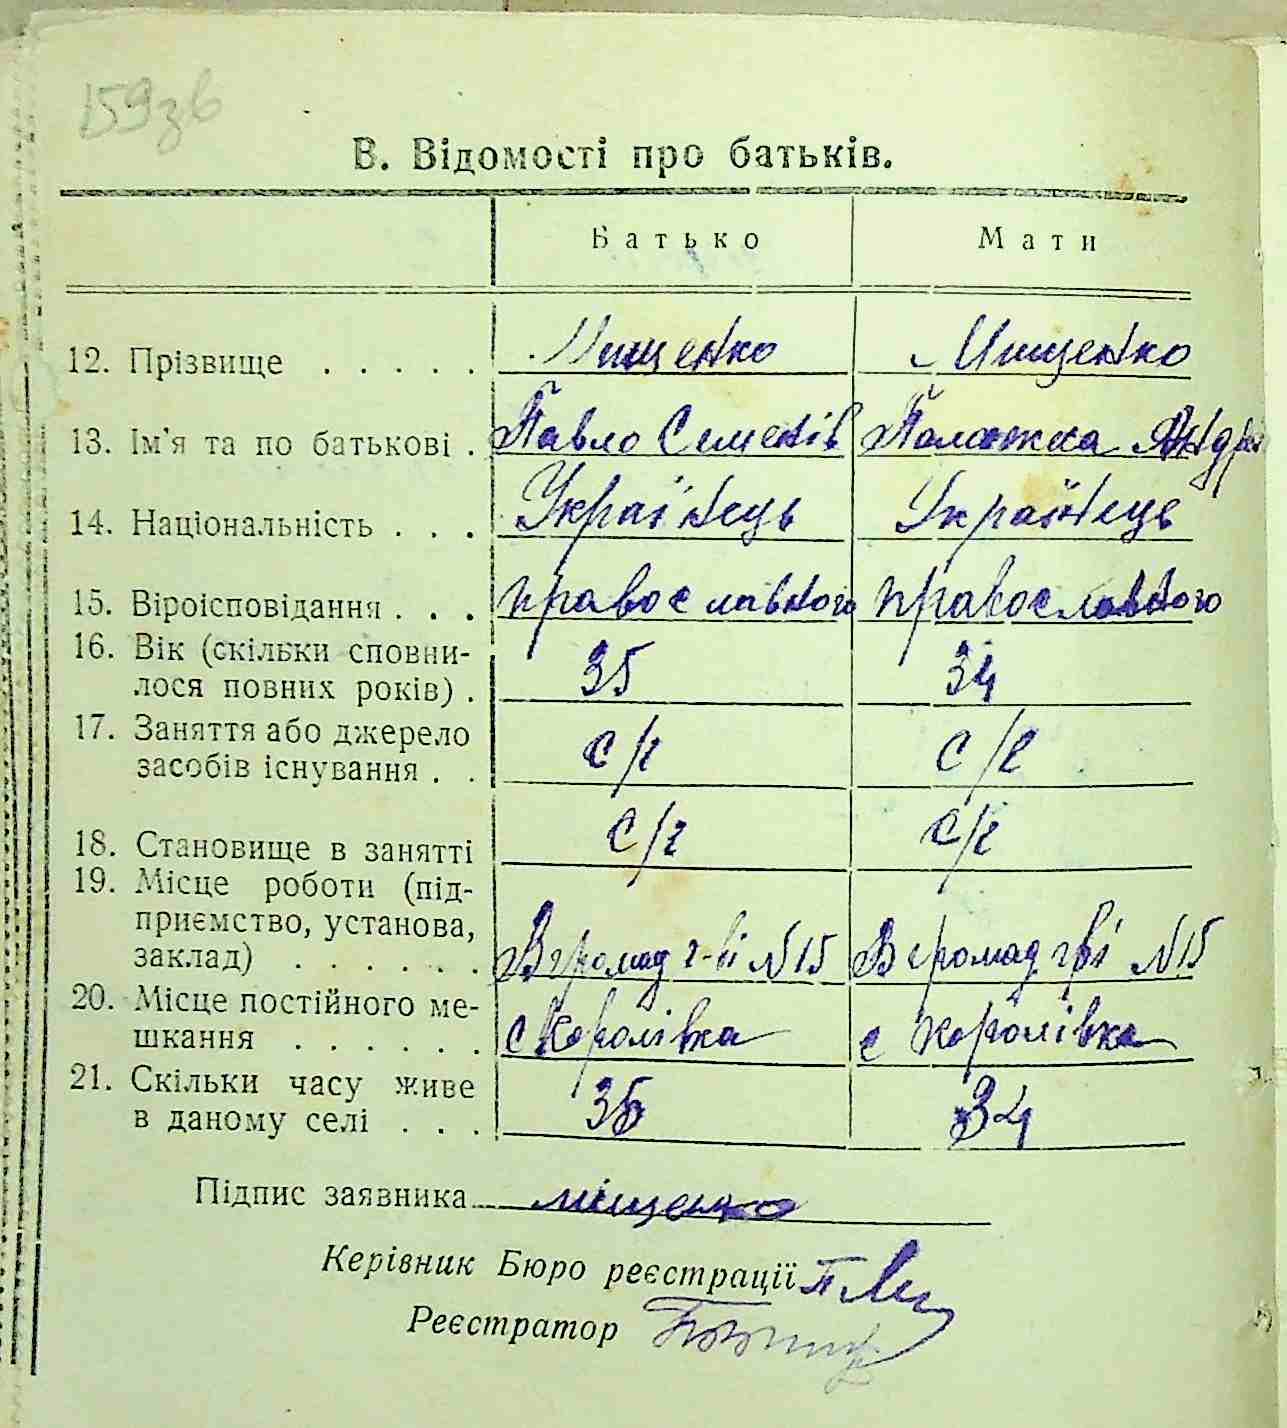 159зв
В. Відомості про батьків.
Батько Мати
12. Прізвище . . . . . Мищенко Мищенко
13. Ім'я та по батькові . Павло Семенів Палажка Андрі
14. Національність . . . Українець Українець
15. Віроісповідання . . . православного православного
16. Вік (скільки сповни-
лося повних років) . 35 34
17. Заняття або джерело
засобів існування . . с/г с/г
18. Становище в занятті с/г с/г
19. Місце роботи (під-
приємство, установа,
заклад) . . . . . . В громад г-ві N15 В громад гві N15
20. Місце постійного ме-
шкання . . . . . . с Королівка с Королівка
21. Скільки часу живе
в даному селі . . . 35 34
Підпис заявника міщенко
Керівник Бюро реєстрації
Реєстратор